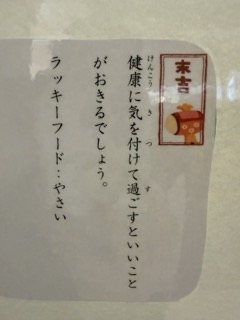 末吉
健康に気を付けて過ごすといいこと
がおきるでしょう。
ラッキーフード：やさい